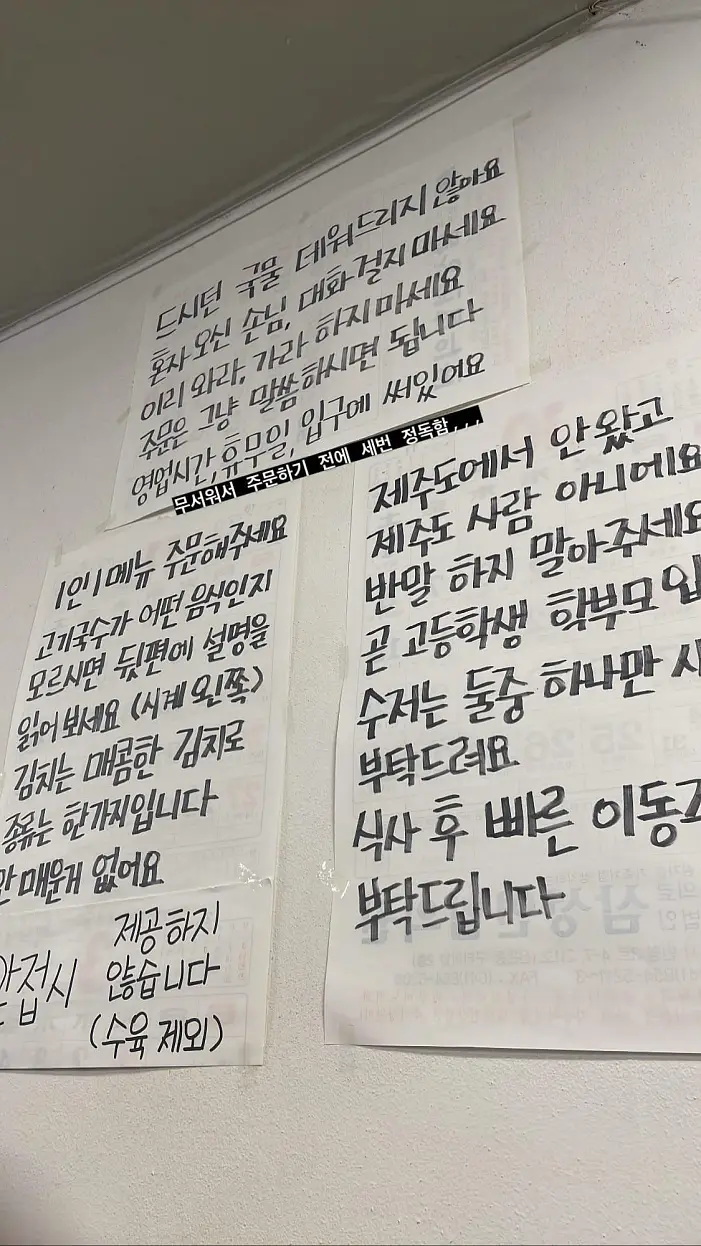 드시던 국물 데워드리지 않아요
혼자 오신 손님, 대화 걸지 마세요
이리 와라, 가라 하지 마세요
주문은 그냥 말씀하시면 됩니다
영업시간, 휴무일, 입구에 써있어요
무서워서 주문하기 전에 세번 정독함...
1인 1메뉴 주문해주세요
고기국수가 어떤 음식인지
모르시면 뒷편에 설명을
읽어 보세요 (시계 왼쪽)
김치는 매콤한 김치로
종류는 한가지입니다
안 매운거 없어요
제공하지
않습니다
(수육 제외)
제주도에서 안 왔고
제주도 사람 아니에요
반말 하지 말아주세요
곧 고등학생 학부모
수저는 둘중 하나만
부탁드려요
식사 후 빠른
부탁드립니다